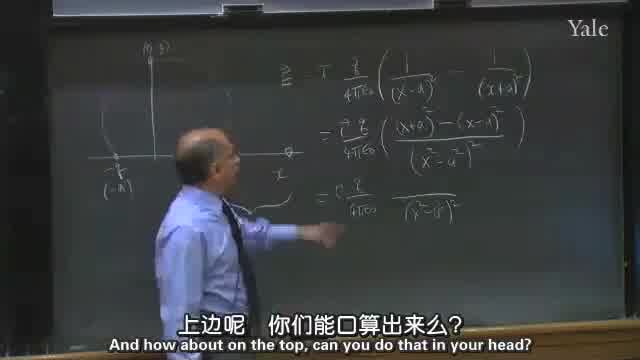 Yale
(0, y)
E = i q/4πε₀ ( 1/(x-a)² - 1/(x+a)² )
= i q/4πε₀ ( (x+a)² - (x-a)² / (x²-a²)² )
-q
x
(-a)
= i q/4πε₀ /(x²-a²)²
上边呢 你们能口算出来么?
And how about on the top, can you do that in your head?